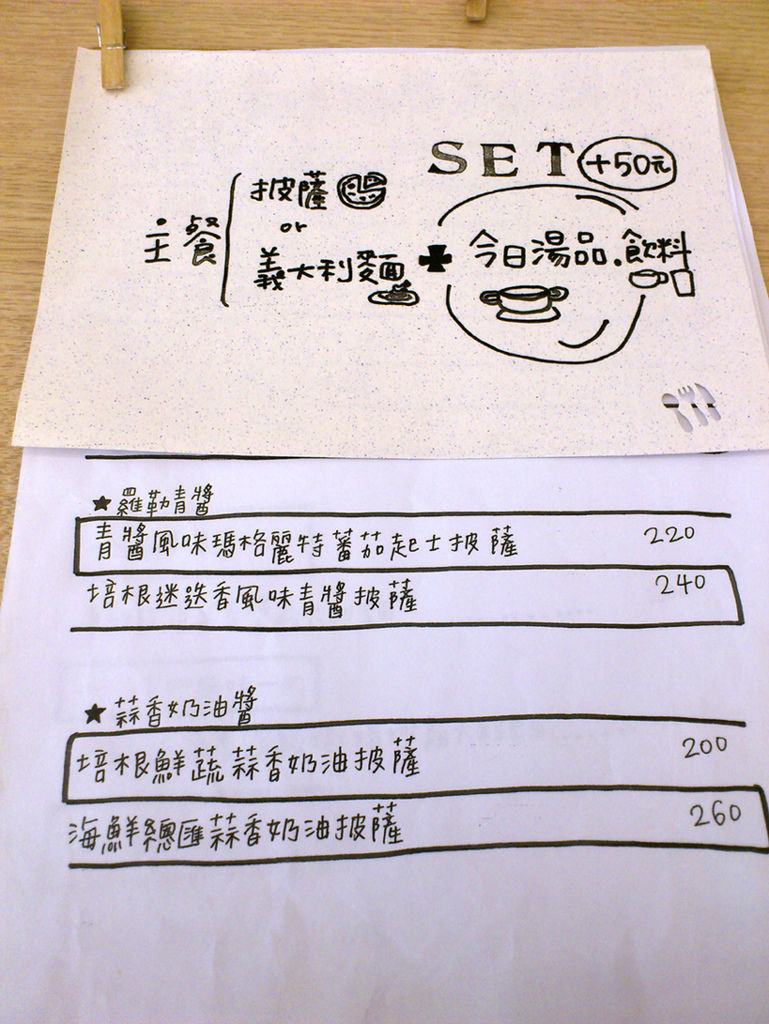 SET +50元
主餐
披薩
or
義大利麵 + 今日湯品.飲料
★羅勒青醬
青醬風味瑪格麗特蕃茄起士披薩 220
培根迷迭香風味青醬披薩 240
★蒜香奶油醬
培根鮮蔬蒜香奶油披薩 200
海鮮總匯蒜香奶油披薩 260